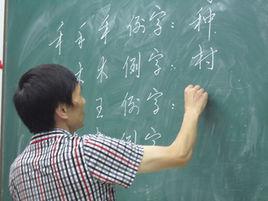 禾 禾 例字：种
木 木 例字：村
王 例字：
例字